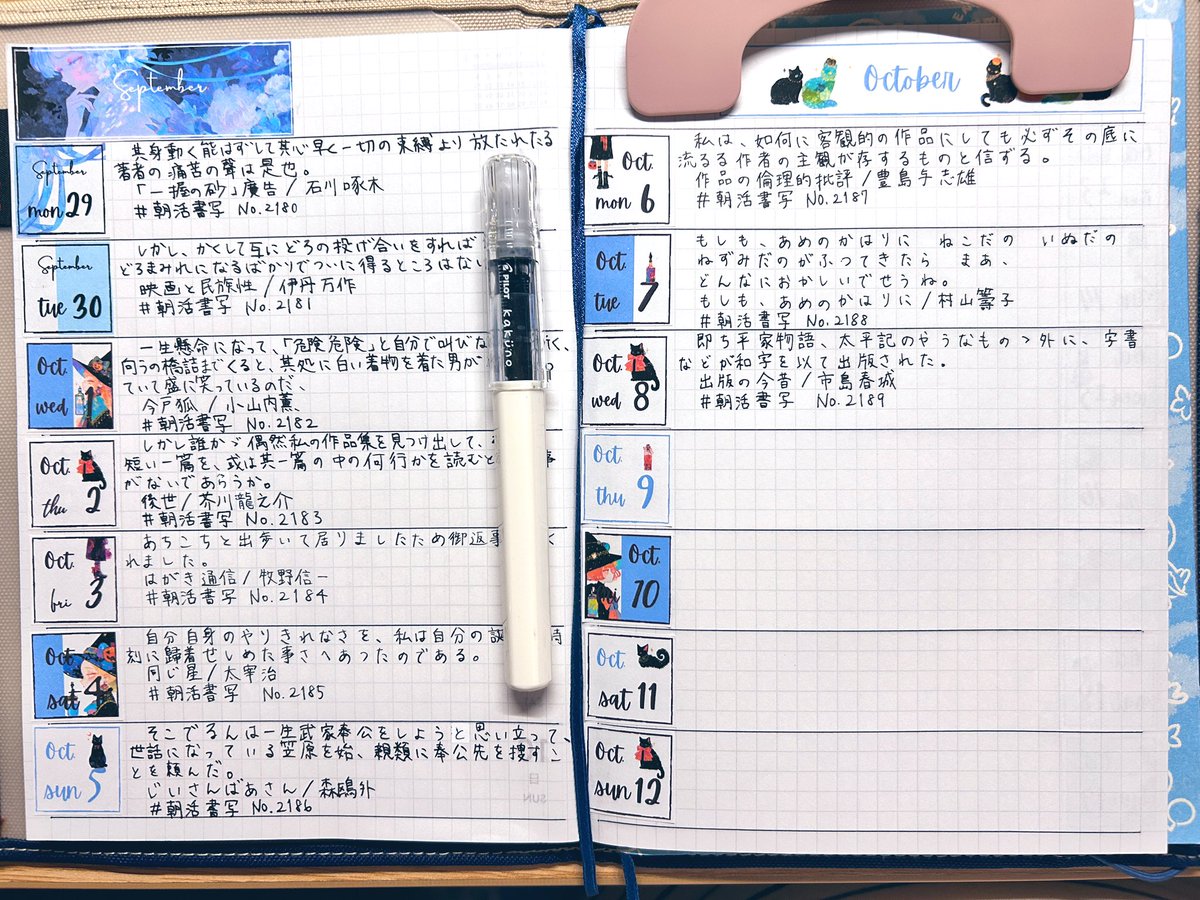 September
September
mon 29
其身動く能はずして其心早く一切の束縛より放たれたる
著者の痛苦の聲は是也。
「一握の砂」廣告 / 石川啄木
#朝活書写 No.2180
September
tue 30
しかし、かくして互にどろの投げ合いをすれば
どろまみれになるばかりでついに得るところはない
映画と民族性 / 伊丹万作
#朝活書写 No.2181
Oct.
wed 1
一生懸命になって、「危険危険」と自分で叫びな
向うの橋詰までくると、其処に白い着物を着た男が
ていて盛に笑っているのだ、
今戸狐 / 小山内薫、
#朝活書写 No.2182
Oct.
thu 2
しかし誰かゞ偶然私の作品集を見つけ出して、
短い一篇を、或は其一篇の中の何行かを読むと
がないであらうか。
後世 / 芥川龍之介
#朝活書写 No.2183
Oct.
fri 3
あちこちと出歩いて居りましたため御返事
れました。
はがき通信 / 牧野信一
#朝活書写 No.2184
Oct
sat 4
自分自身のやりきれなさを、私は自分の
刻に歸着せしめた事さへあつたのである。
同じ星 / 太宰治
#朝活書写 No.2185
Oct
sun 5
そこでるんは一生武家奉公をしようと思い立って、
世話になっている笠原を始、親類に奉公先を捜すこ
とを頼んだ。
じいさんばあさん / 森鴎外
#朝活書写 No.2186
PILOT kakuno
October
Oct.
mon 6
私は、如何に客観的の作品にしても必ずその底に
流るる作者の主観が存するものと信ずる。
作品の倫理的批評 / 豊島与志雄
#朝活書写 No.2187
Oct.
tue 7
もしも、あめのかはりに ねこだの いぬだの
ねずみだのがふつてきたら まあ、
どんなにおかしいでせうね。
もしも、あめのかはりに / 村山籌子
#朝活書写 No.2188
Oct
wed 8
即ち平家物語、太平記のやうなものゝ外に、字書
などが和字を以て出版された。
出版の今昔 / 市島春城
#朝活書写 No.2189
Oct.
thu 9
Oct.
10
Oct
sat 11
Oct.
sun 12